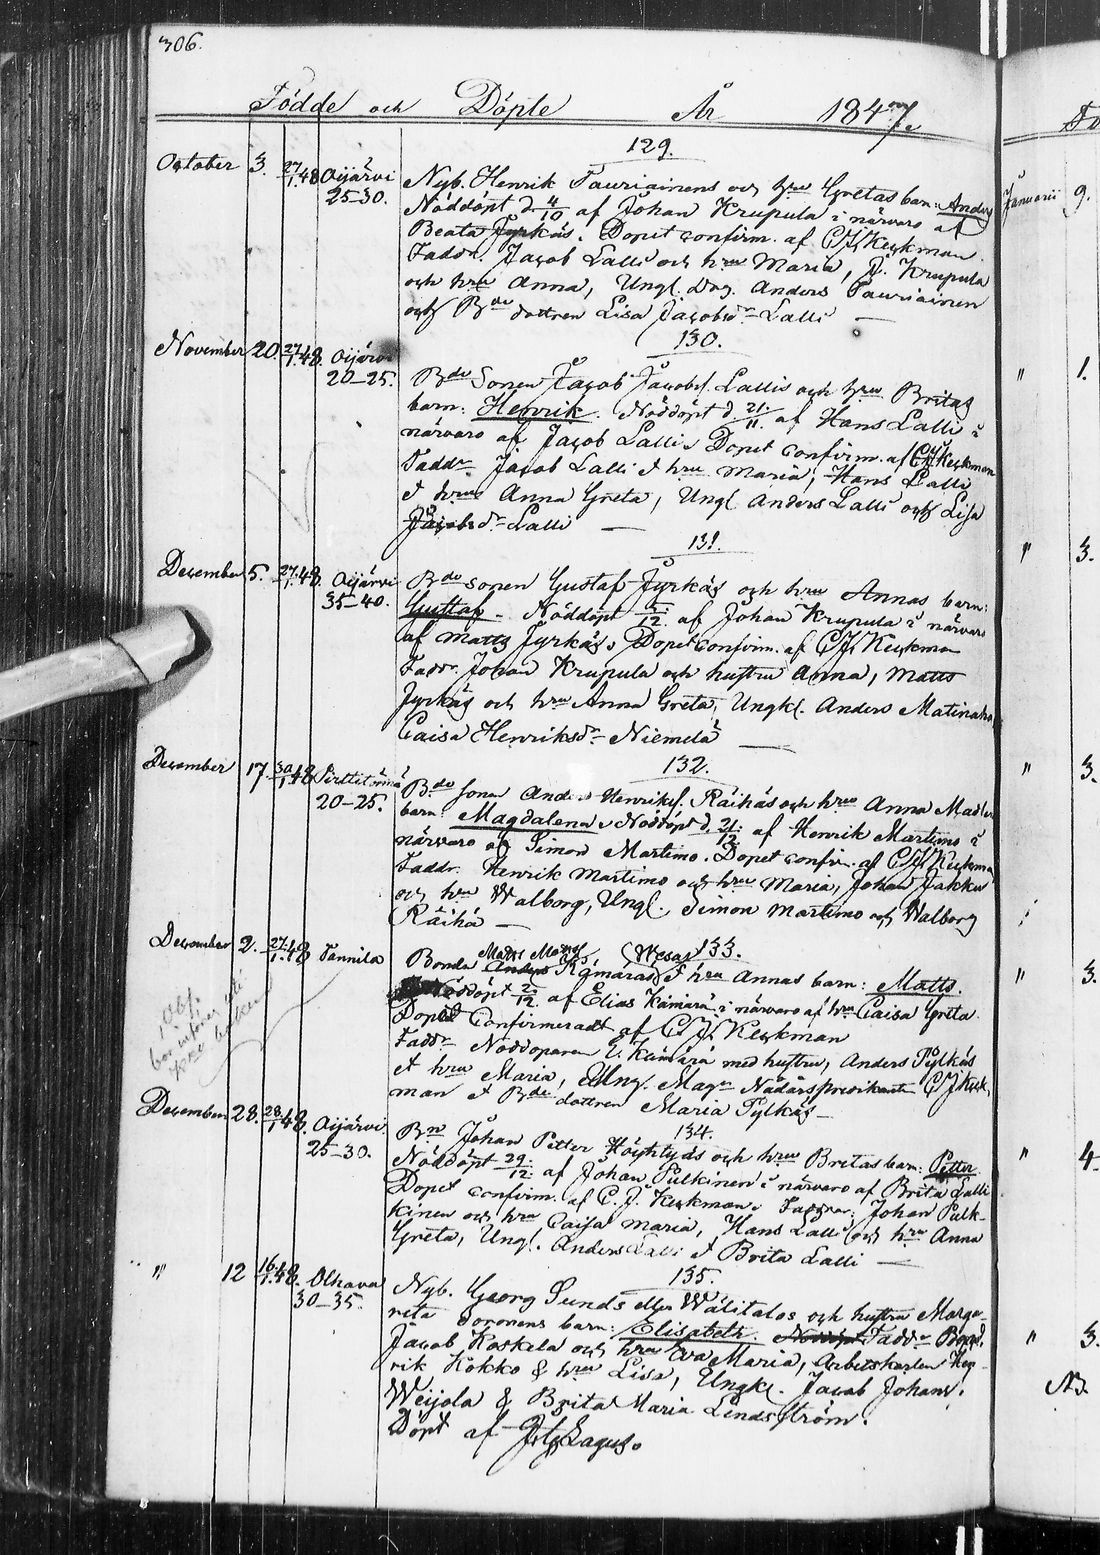 306.
Födde och Döpte År 1847
129.
October 3. 27/1.48 Oijärvi 25-30. Nyb. Henrik Tauriainens och hru Gretas barn: Anders
Nöddöpt d. 4/10 af Johan Krupula i närvaro af
Beata Jyrkäs. Dopet confirm. af CJ Keckman
Faddr. Jacob Lalli och hru Maria, J. Krupula
och hru Anna, Ungl. Drg. Anders Tauriainen
och Bde dottren Lisa Jacobsdr Lalli —
130.
November 20. 27/1.48. Oijärvi 20-25. Bde Sonen Jacob Jacobs. Lallis och hru Britas
barn: Henrik. Nöddöpt d. 21/11. af Hans Lalli i
närvaro af Jacob Lalli. Dopet confirm. af CJ Keckman
Faddr. Jacob Lalli & hru Maria, Hans Lalli
& hru Anna Greta, Ungl. Anders Lalli och Lisa
Jacobsdr Lalli —
131.
December 5. 27/1.48. Oijärvi 35-40. Bde sonen Gustaf Jyrkäs och hru Annas barn:
Gustaf. Nöddöpt 5/12. af Johan Krupula i närvaro
af Matts Jyrkäs. Dopet confirm. af CJ Keckman
Faddr. Johan Krupula och hustru Anna, Matts
Jyrkäs och hru Anna Greta, Ungk. Anders Matinaho
Caisa Henriksdr Niemelä —
132.
December 17 30/1.48 Pirttitörmä 20-25. Bde sonen Anders Henriks. Räihäs och hru Anna Madlen
barn: Magdalena. Nöddöpt d. 21/12. af Henrik Martimo i
närvaro af Simon Martimo. Dopet confir. af CJ Keckman
Faddr. Henrik Martimo och hru Maria, Johan Jakku
och hru Walborg, Ungl. Simon Martimo och Walborg
Räihä —
133.
December 2. 27/1.48 Tannila Bonde Matts Matts. Kämäräs (Wesa) & hru Annas barn: Matts.
Nöddöpt 2/12 af Elias Kämärä i närvaro af hru Caisa Greta.
Dopet Confirmeradt af CJ Keckman
Faddr Nöddöparen E. Kämärä med hustru, Anders Pylkäs
& hru Maria, Ung. Magr Nådårspredikanten CJ Keck-
man & Bde dottren Maria Pylkäs —
Obs.
bör införas
134.
December 28. 28/1.48. Oijärvi 25-30. Bn Johan Petter Höyhtyäs och hru Britas barn: Petter.
Nöddöpt 29/12. af Johan Pulkinen i närvaro af Brita Lalli
Dopet confirm. af C. J. Keckman. Faddrar: Johan Pulk-
kinen och hru Caisa Maria, Hans Lalli och hru Anna
Greta, Ungl. Anders Lalli & Brita Lalli —
135.
" 12 16/1.48. Olhava 30-35. Nyb. Georg Sunds eller Wälitalos och hustru Marga-
reta barn: Elisabeth. Nöddöpt Faddr Bond.
Jacob Koskela och hru Eva Maria, Arbetskarlen Hen-
rik Kokko & hru Lisa, Ungk. Jacob Johans.
Weijola & Brita Maria Lindström.
Döpt af Lagus.
Januarii 9.
" 1.
" 3.
" 3.
" 3.
" 4.
" 3.